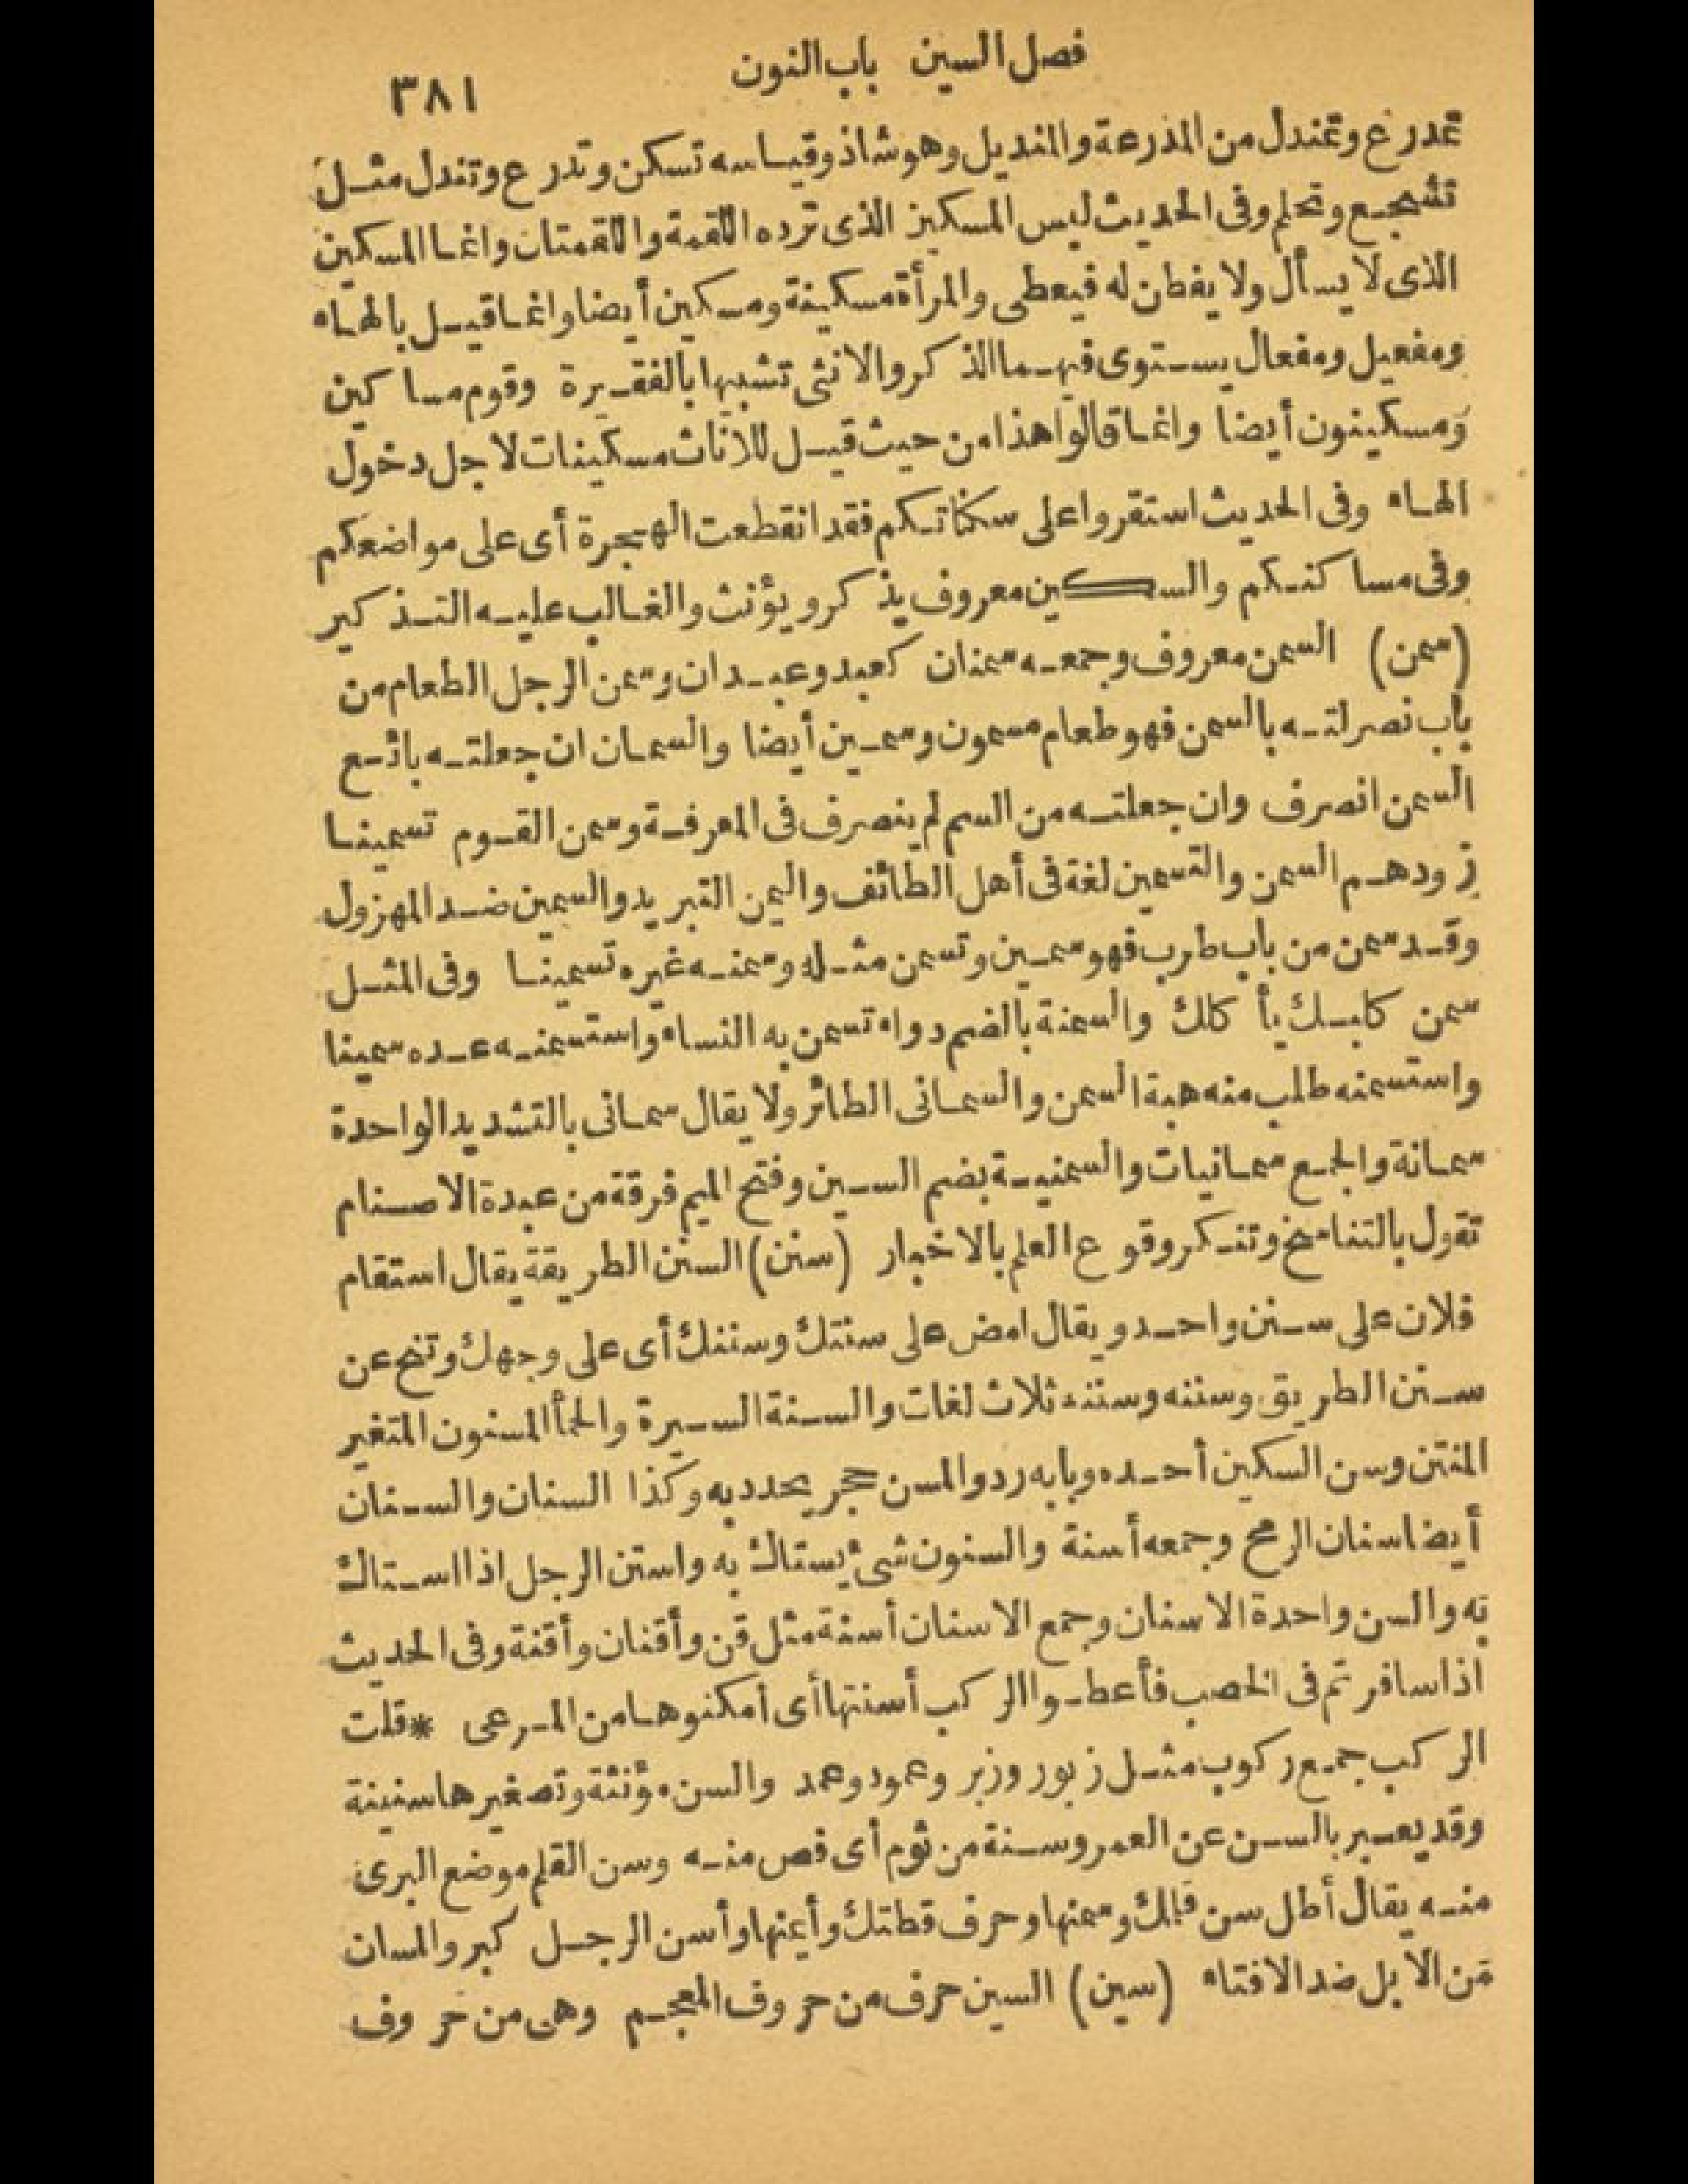 فصل السين باب النون
٣٨١
تمدرع وتمندل من المدرعة والمنديل وهو شاذ وقياسه تسكن وتدرع وتندل مثل
تشجع وتحلم وفى الحديث ليس المسكين الذى ترده اللقمة واللقمتان وانما المسكين
الذى لا يسأل ولا يفطن له فيعطى والمرأة مسكينة ومسكين أيضا وانما قيل بالهاء
ومفعيل ومفعال يستوى فيهما الذكر والانثى تشبيها بالفقيرة وقوم مساكين
ومسكينون أيضا وانما قالوا هذا من حيث قيل للاناث مسكينات لاجل دخول
الهاء وفى الحديث استقروا على سكناتكم فقد انقطعت الهجرة أى على مواضعكم
وفى مساكنكم والسكين معروف يذكر ويؤنث والغالب عليه التذكير
(سمن) السمن معروف وجمعه سمنان كعبد وعبدان وسمن الرجل الطعام من
باب نصر لته بالسمن فهو طعام مسمون وسمين أيضا والسمان ان جعلته بائع
السمن انصرف وان جعلته من السم لم ينصرف فى المعرفة وسمن القوم تسمينا
زودهم السمن والتسمين لغة فى أهل الطائف واليمن التبريد والسمين ضد المهزول
وقد سمن من باب طرب فهو سمين وتسمن مثله وسمنه غيره تسمينا وفى المثل
سمن كلبك يأكلك والسمنة بالضم دواء تسمن به النساء واستسمنه عده سمينا
واستسمنه طلب منه هبة السمن والسمانى الطائر ولا يقال سمانى بالتشديد الواحدة
سمانة والجمع سمانيات والسمنية بضم السين وفتح الميم فرقة من عبدة الاصنام
تقول بالتناسخ وتنكر وقوع العلم بالاخبار (سنن) السنن الطريقة يقال استقام
فلان على سنن واحد ويقال امض على سننك وسننك أى على وجهك وتنح عن
سنن الطريق وسننه وسننه ثلاث لغات والسنة السيرة والحمأ المسنون المتغير
المنتن وسن السكين أحده وبابه رد والمسن حجر يحدد به وكذا السنان والسنان
أيضا سنان الرمح وجمعه أسنة والسنون شئ يستاك به واستن الرجل اذا استاك
به والسن واحدة الاسنان وجمع الاسنان أسنة مثل قن وأقنان وأقنة وفى الحديث
اذا سافرتم فى الخصب فأعطوا الركب أسنتها أى أمكنوها من المرعى * قلت
الركب جمع ركوب مثل زبور وزبر وعمود وعمد والسن مؤنثة وتصغيرها سنينة
وقد يعبر بالسن عن العمر وسنة من ثوم أى فص منه وسن القلم موضع البرى
منه يقال أطل سن قلمك وسمنها وحرف قطتك وأيمنها وأسن الرجل كبر والمسان
من الابل ضد الافتاء (سين) السين حرف من حروف المعجم وهى من حروف